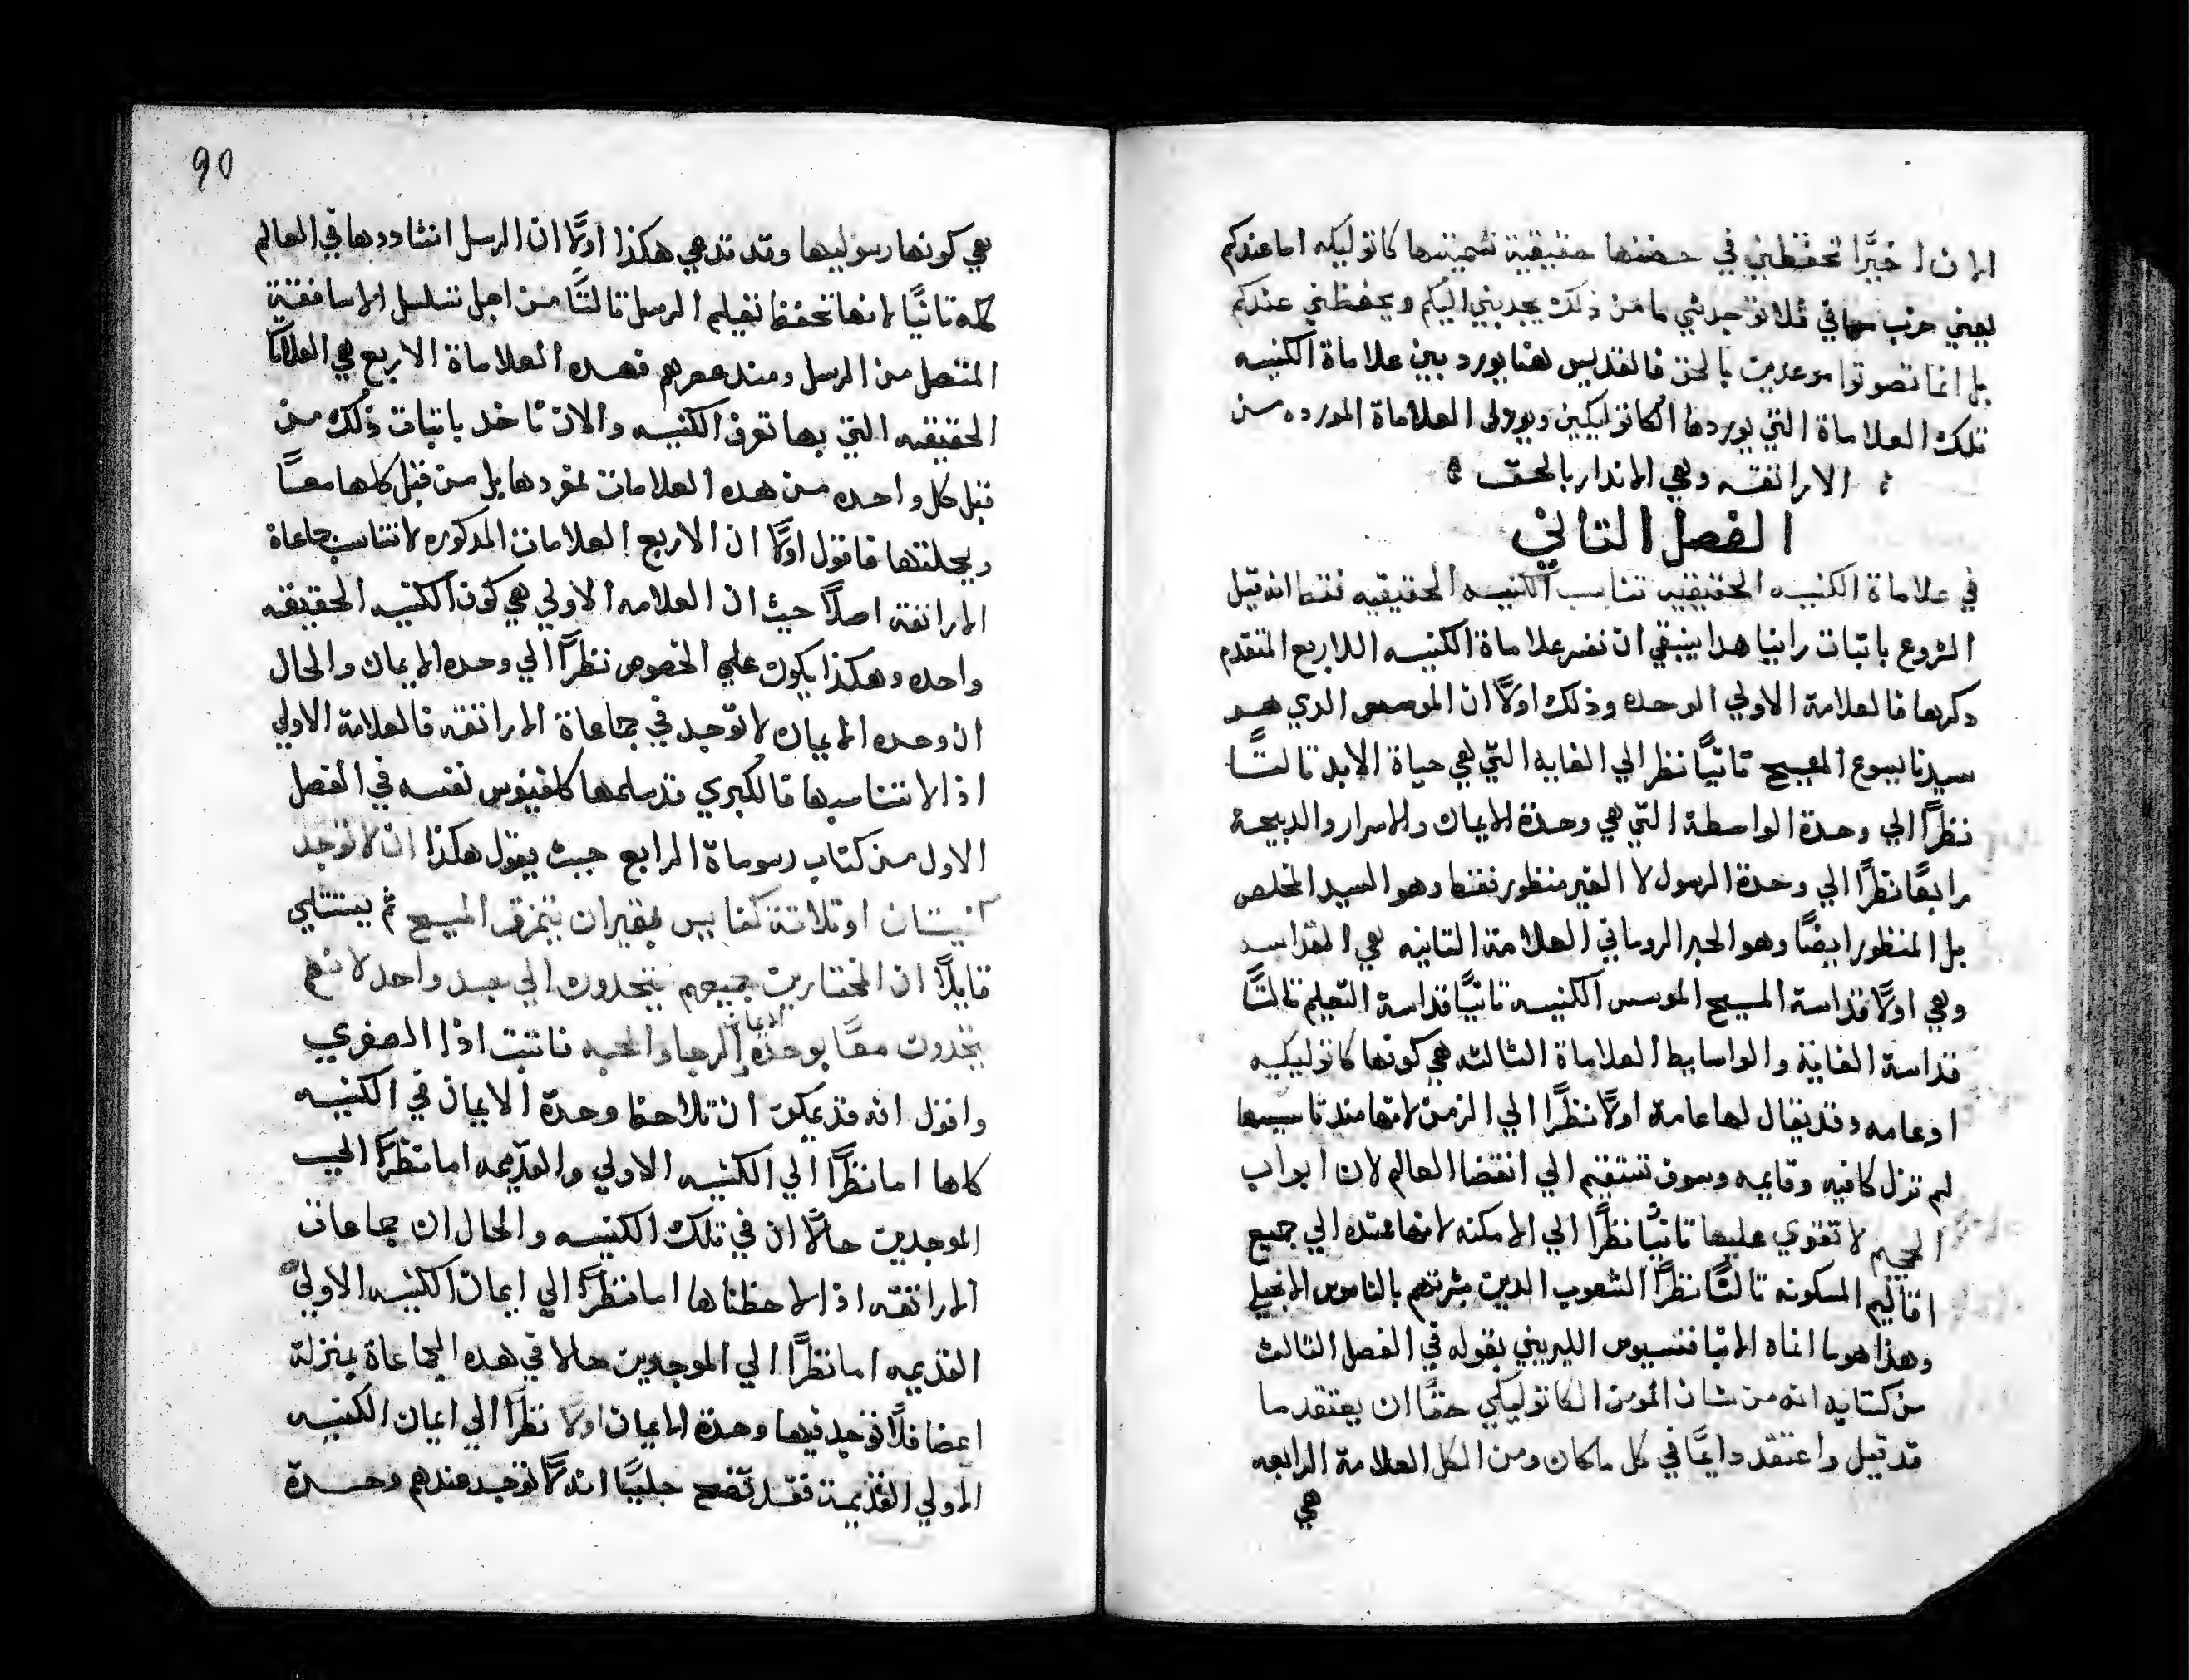 الان اخيرًا تحفظني في حضنها حقيقية تسميتها كاتوليكيه اما عندكم
يعني حزب ماني فلا توجد شي ما من ذلك يجدبني اليكم ويحفظني عندكم
بل انما تصوتوا موعدين بالحق فالقديس هنا يورد بين علاماة الكنيسه
تلك العلاماة التي يوردها الكاتوليكين ويورلي العلاماة المورده من
الاراتقه وهي الاندار بالحق
الفصل التاني
في علاماة الكنيسه الحقيقيه تناسب الكنيسه الحقيقيه فقط انه قبل
الشروع باتبات راينا هدا ينبغي ان نفسر علاماة الكنيسه اللاربع المتقدم
دكرها فالعلامة الاولي الوحده وذلك اولًا ان الموسس الدي هو
سيدنا يسوع المسيح تانيًا نظر الي الغايه التي هي حياة الابد تالتًا
نظرًا الي وحدة الواسطة التي هي وحدة الايمان والاسرار والدبيحة
رابعًا نظرًا الي وحدة الرسول لا الغير منظور فقط وهو السيد المخلص
بل المنظور ايضًا وهو الحبر الروماني العلامة التانيه هي القداسه
وهي اولًا قداسة المسيح الموسس الكنيسه تانيًا قداسة التعليم تالتًا
قداسة الغاية والواسايط العلاماة التالته هي كونها كاتوليكيه
اوعامه وقد يقال لها عامة اولًا نظرًا الي الزمن لانها مند تاسيسها
لم تزل كافيه وقايمه وسوف تستقيم الي انقضا العالم لان ابواب
الجحيم لا تقوي عليها تانيًا نظرًا الي الامكنه لانها ممتده الي جميع
اقاليم المسكونه تالتًا نظرًا الشعوب الدين بشرتهم بالناموس الانجيلي
وهذا هو ما انباه الاتبا فنسيوس الليريني بقوله في الفصل التالت
من كتابه انه من شان المومن الكاتوليكي حقًا ان يعتقد ما
قد قيل واعتقد دايمًا في كل ماكان ومن الكل العلامة الرابعه
هي
90
هي كونها رسوليها وقد تدعي هكذا اولًا ان الرسل انشادوها في العالم
كله تانيًا لانها تحفظ تعليم الرسل تالتًا من اجل تسلسل الاساقفية
المتصل من الرسل ومند عصرهم فهده العلاماة الاربع هي العلامات
الحقيقيه التي بها تعرف الكنيسه والان ناخد باتبات ذلك من
قبل كل واحده من هده العلامات بمفردها بل من قبل كلها معًا
وبجملتها فاقول اولًا ان الاربع العلامات المدكوره لا تناسب جماعاة
الاراتقة اصلًا حيث ان العلامه الاولي هي كون الكنيسه الحقيقه
واحده وهكذا يكون علي الخصوص نظرًا الي وحده الايمان والحال
ان وحده الايمان لا توجد في جماعاة الاراتقه فالعلامة الاولي
اذا لا تتناسبها فالكبري قد سلمها كلفينوس نفسه في الفصل
الاول من كتاب رسوماة الرابع حيث يقول هكذا ان لا توجد
كنيستان او تلاتة كنايس بغيران يتمزق المسيح ثم يستتلي
قايلًا ان المختارين جميعهم يتحدون الي جسد واحد لانهم
يتحدون معًا بوحدة الايمان والرجا والمحبه فاتبت اذا الصغري
واقول انه قد يمكن ان تلاحظ وحدة الايمان في الكنيسه
كلها اما نظرًا الي الكنيسه الاولي والقديمه اما نظرًا الي
الموجدين حالًا ان في تلك الكنيسه والحال ان جماعات
الاراتقه اذا لاحظناها اما نظرًا الي ايمان الكنيسه الاولي
القديمه اما نظرًا الي الموجدين حالا في هده الجماعاة بمنزلة
اعضا فلا توجد فيها وحدة الايمان اولًا نظرًا الي ايمان الكنيسه
الاولي القديمة فقد تضح جليًا انه لا توجد عندهم وحدة